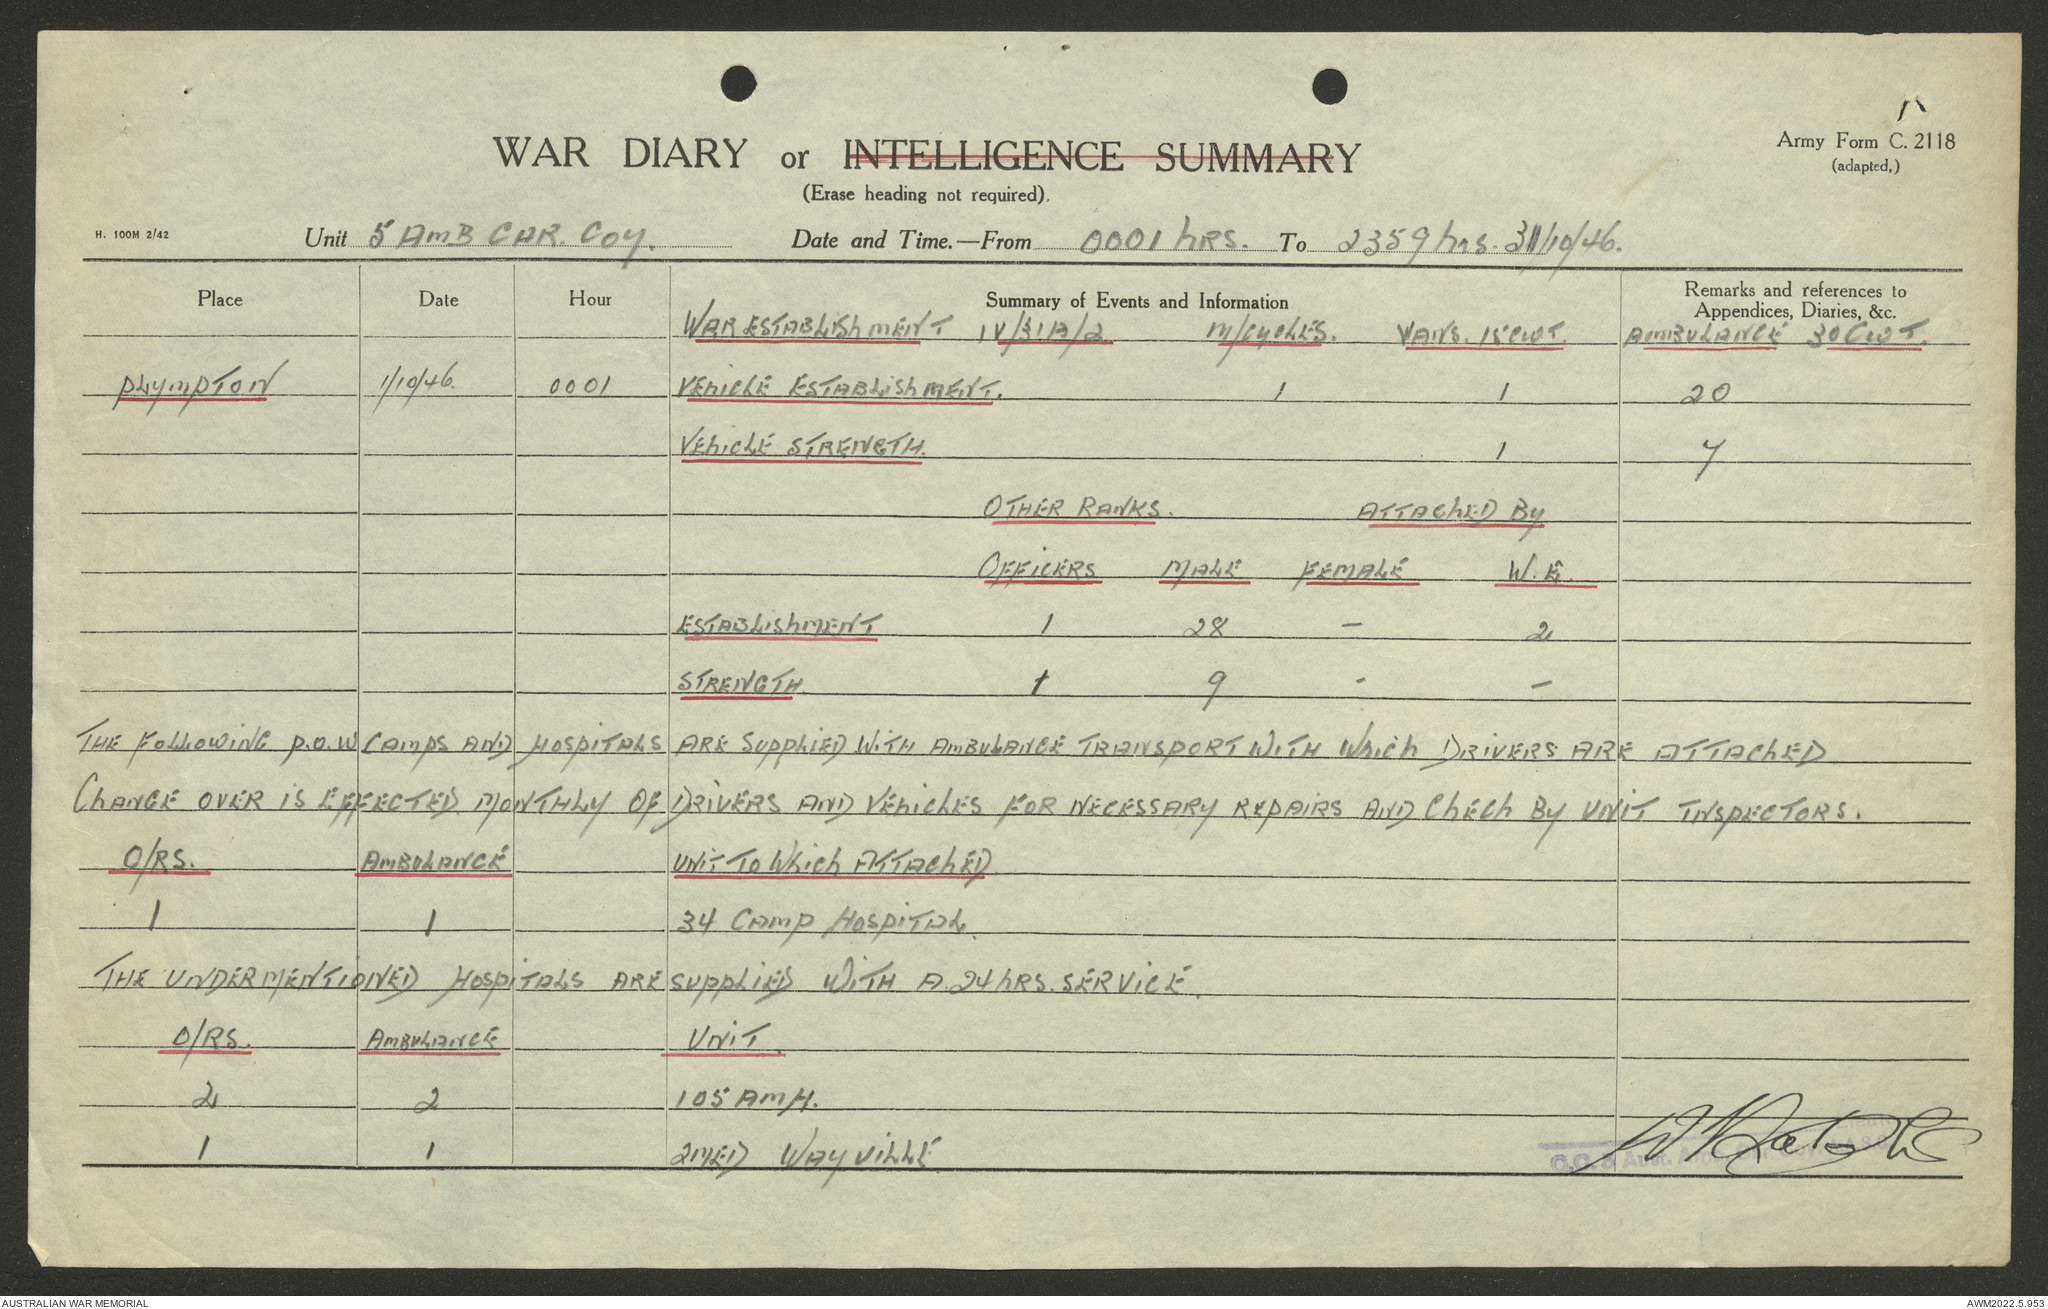 WAR DIARY or INTELLIGENCE SUMMARY
Army Form C. 2118
(adapted,)
(Erase heading not required).
H. 100M 2/42
Unit 5 AMB CAR. COY. Date and Time.—From 0001 hRS. To 2359 hrs. 31/10/46.
Place Date Hour Summary of Events and Information Remarks and references to
Appendices, Diaries, &c.
WAR ESTABLISHMENT IV/31A/2 M/CYCLES. VANS. 15 CWT. AMBULANCE 30 CWT.
PLYMPTON 1/10/46. 0001 VEHICLE ESTABLISHMENT. 1 1 20
VEHICLE STRENGTH. 1 7
OTHER RANKS. ATTACHED By
OFFICERS MALE FEMALE W.E.
ESTABLISHMENT 1 28 – 2
STRENGTH 1 9 - –
THE FOLLOWING P.O.W CAMPS AND HOSPITALS ARE SUPPLIED WITH AMBULANCE TRANSPORT WITH WHICH DRIVERS ARE ATTACHED
CHANGE OVER IS EFFECTED MONTHLY OF DRIVERS AND VEHICLES FOR NECESSARY REPAIRS AND CHECH BY UNIT INSPECTORS.
O/RS. AMBULANCE UNIT TO WHICH ATTACHED
1 1 34 CAMP HOSPITAL.
THE UNDERMENTIONED HOSPITALS ARE SUPPLIED WITH A 24 hRS. SERVICE.
O/RS. AMBULANCE UNIT.
2 2 105 AMH.
1 1 2MED WAYVILLE
O.C. 5 Aust.
AUSTRALIAN WAR MEMORIAL
AWM2022.5.953